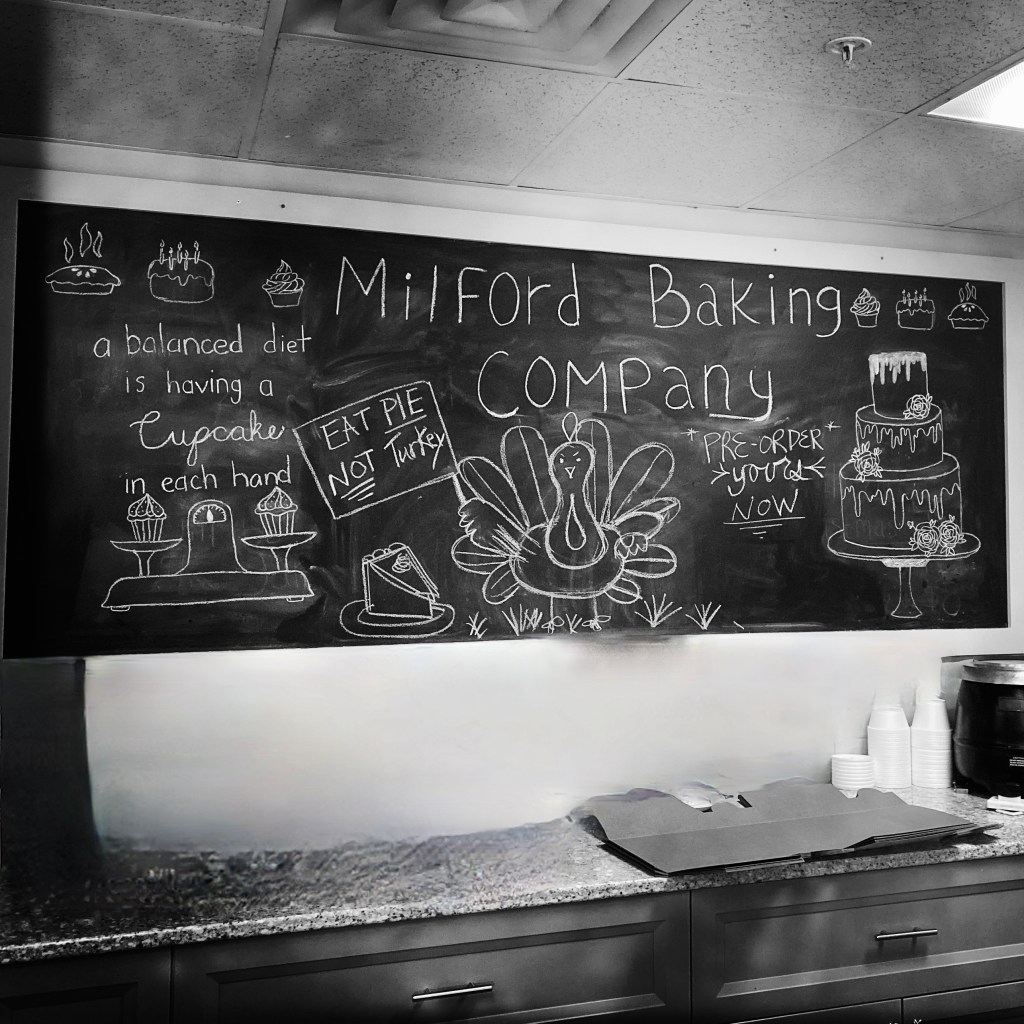 Milford Baking
Company
a balanced diet
is having a
Cupcake
in each hand
EAT PIE
NOT Turkey
*PRE-ORDER*
yours
NOW